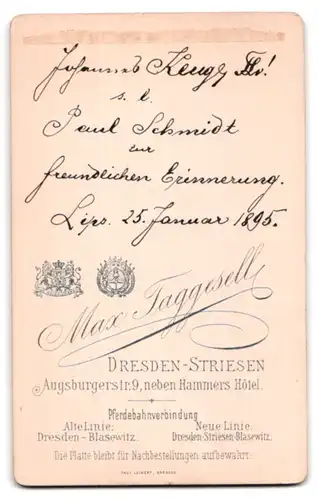 Johannes Kluge, Fr!
s. l.
Paul Schmidt
zur
freundlichen Erinnerung.
Lips. 25. Januar 1895.
Max Taggesell
DRESDEN-STRIESEN
Augsburgerstr. 9, neben Hammers Hôtel.
Pferdebahnverbindung
Alte Linie: Neue Linie:
Dresden-Blasewitz. Dresden-Striesen-Blasewitz.
Die Platte bleibt für Nachbestellungen aufbewahrt.